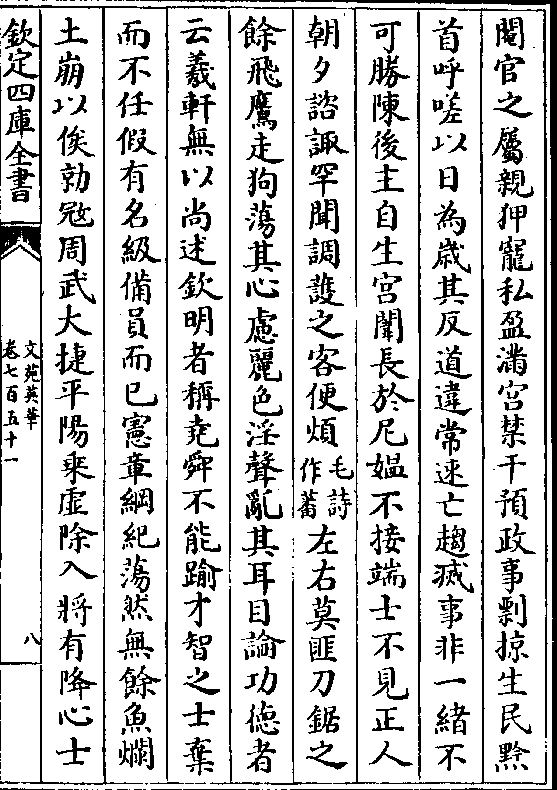 閹官之屬親狎寵私盈滿宫禁干預政事剽掠生民黔
首呼嗟以日為歳其反道違常速亡趨滅事非一緒不
可勝陳後主自生宫闈長於尼媪不接端士不見正人
朝夕諮諏罕聞調䕶之客便煩毛詩作蕃左右莫匪刀鋸之
餘飛鷹走狗蕩其心慮麗色淫聲亂其耳目論功徳者
云羲軒無以尚述欽明者稱堯舜不能踰才智之士棄
而不任假有名級備員而已憲章綱紀蕩然無餘魚爛
土崩以俟勍㓂周武大捷平陽乘虚除入將有降心士
欽定四庫全書
文苑英華
卷七百五十一
八